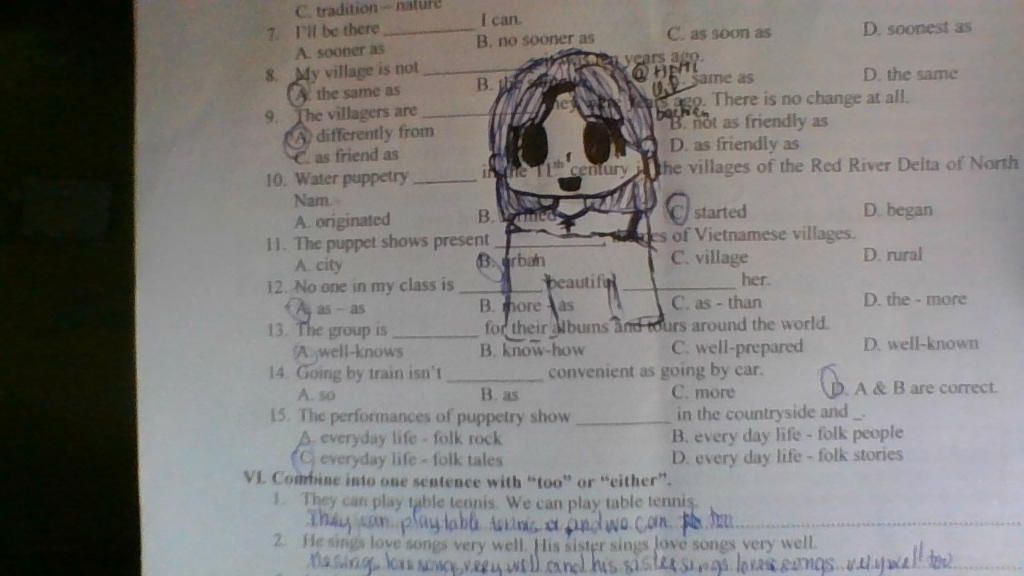 C. tradition – nature
7. I'll be there __________ I can.
A. sooner as B. no sooner as C. as soon as D. soonest as
8. My village is not __________ years ago.
A. the same as B. same as D. the same
9. The villagers are __________ they were years ago. There is no change at all.
A. differently from B. not as friendly as
C. as friend as D. as friendly as
10. Water puppetry ______ in the 11th century the villages of the Red River Delta of North
Nam.
A. originated B. C. started D. began
11. The puppet shows present __________ of Vietnamese villages.
A. city B. urban C. village D. rural
12. No one in my class is ________ beautiful __________ her.
A. as – as B. more - as C. as - than D. the - more
13. The group is _________ for their albums and tours around the world.
A. well-knows B. know-how C. well-prepared D. well-known
14. Going by train isn't __________ convenient as going by car.
A. so B. as C. more D. A & B are correct.
15. The performances of puppetry show __________ in the countryside and _.
A. everyday life - folk rock B. every day life - folk people
C. everyday life - folk tales D. every day life - folk stories
VI. Combine into one sentence with “too” or “either”.
1. They can play table tennis. We can play table tennis.
They can play table tennis and we can too
2. He sings love songs very well. His sister sings love songs very well.
He sings love song very well and his sister sings love songs very well too